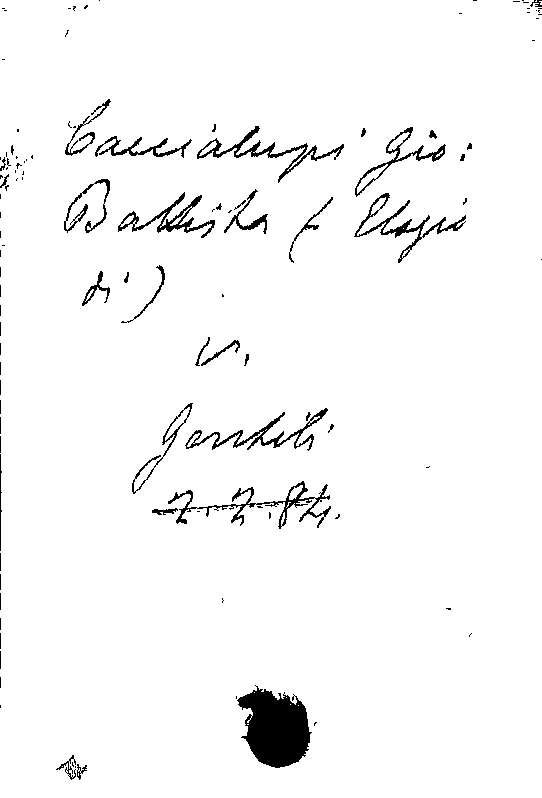 Caccialupi Gio:
Battista (+ Elogio
di)
v.
Gentili
Z. Z. 84.